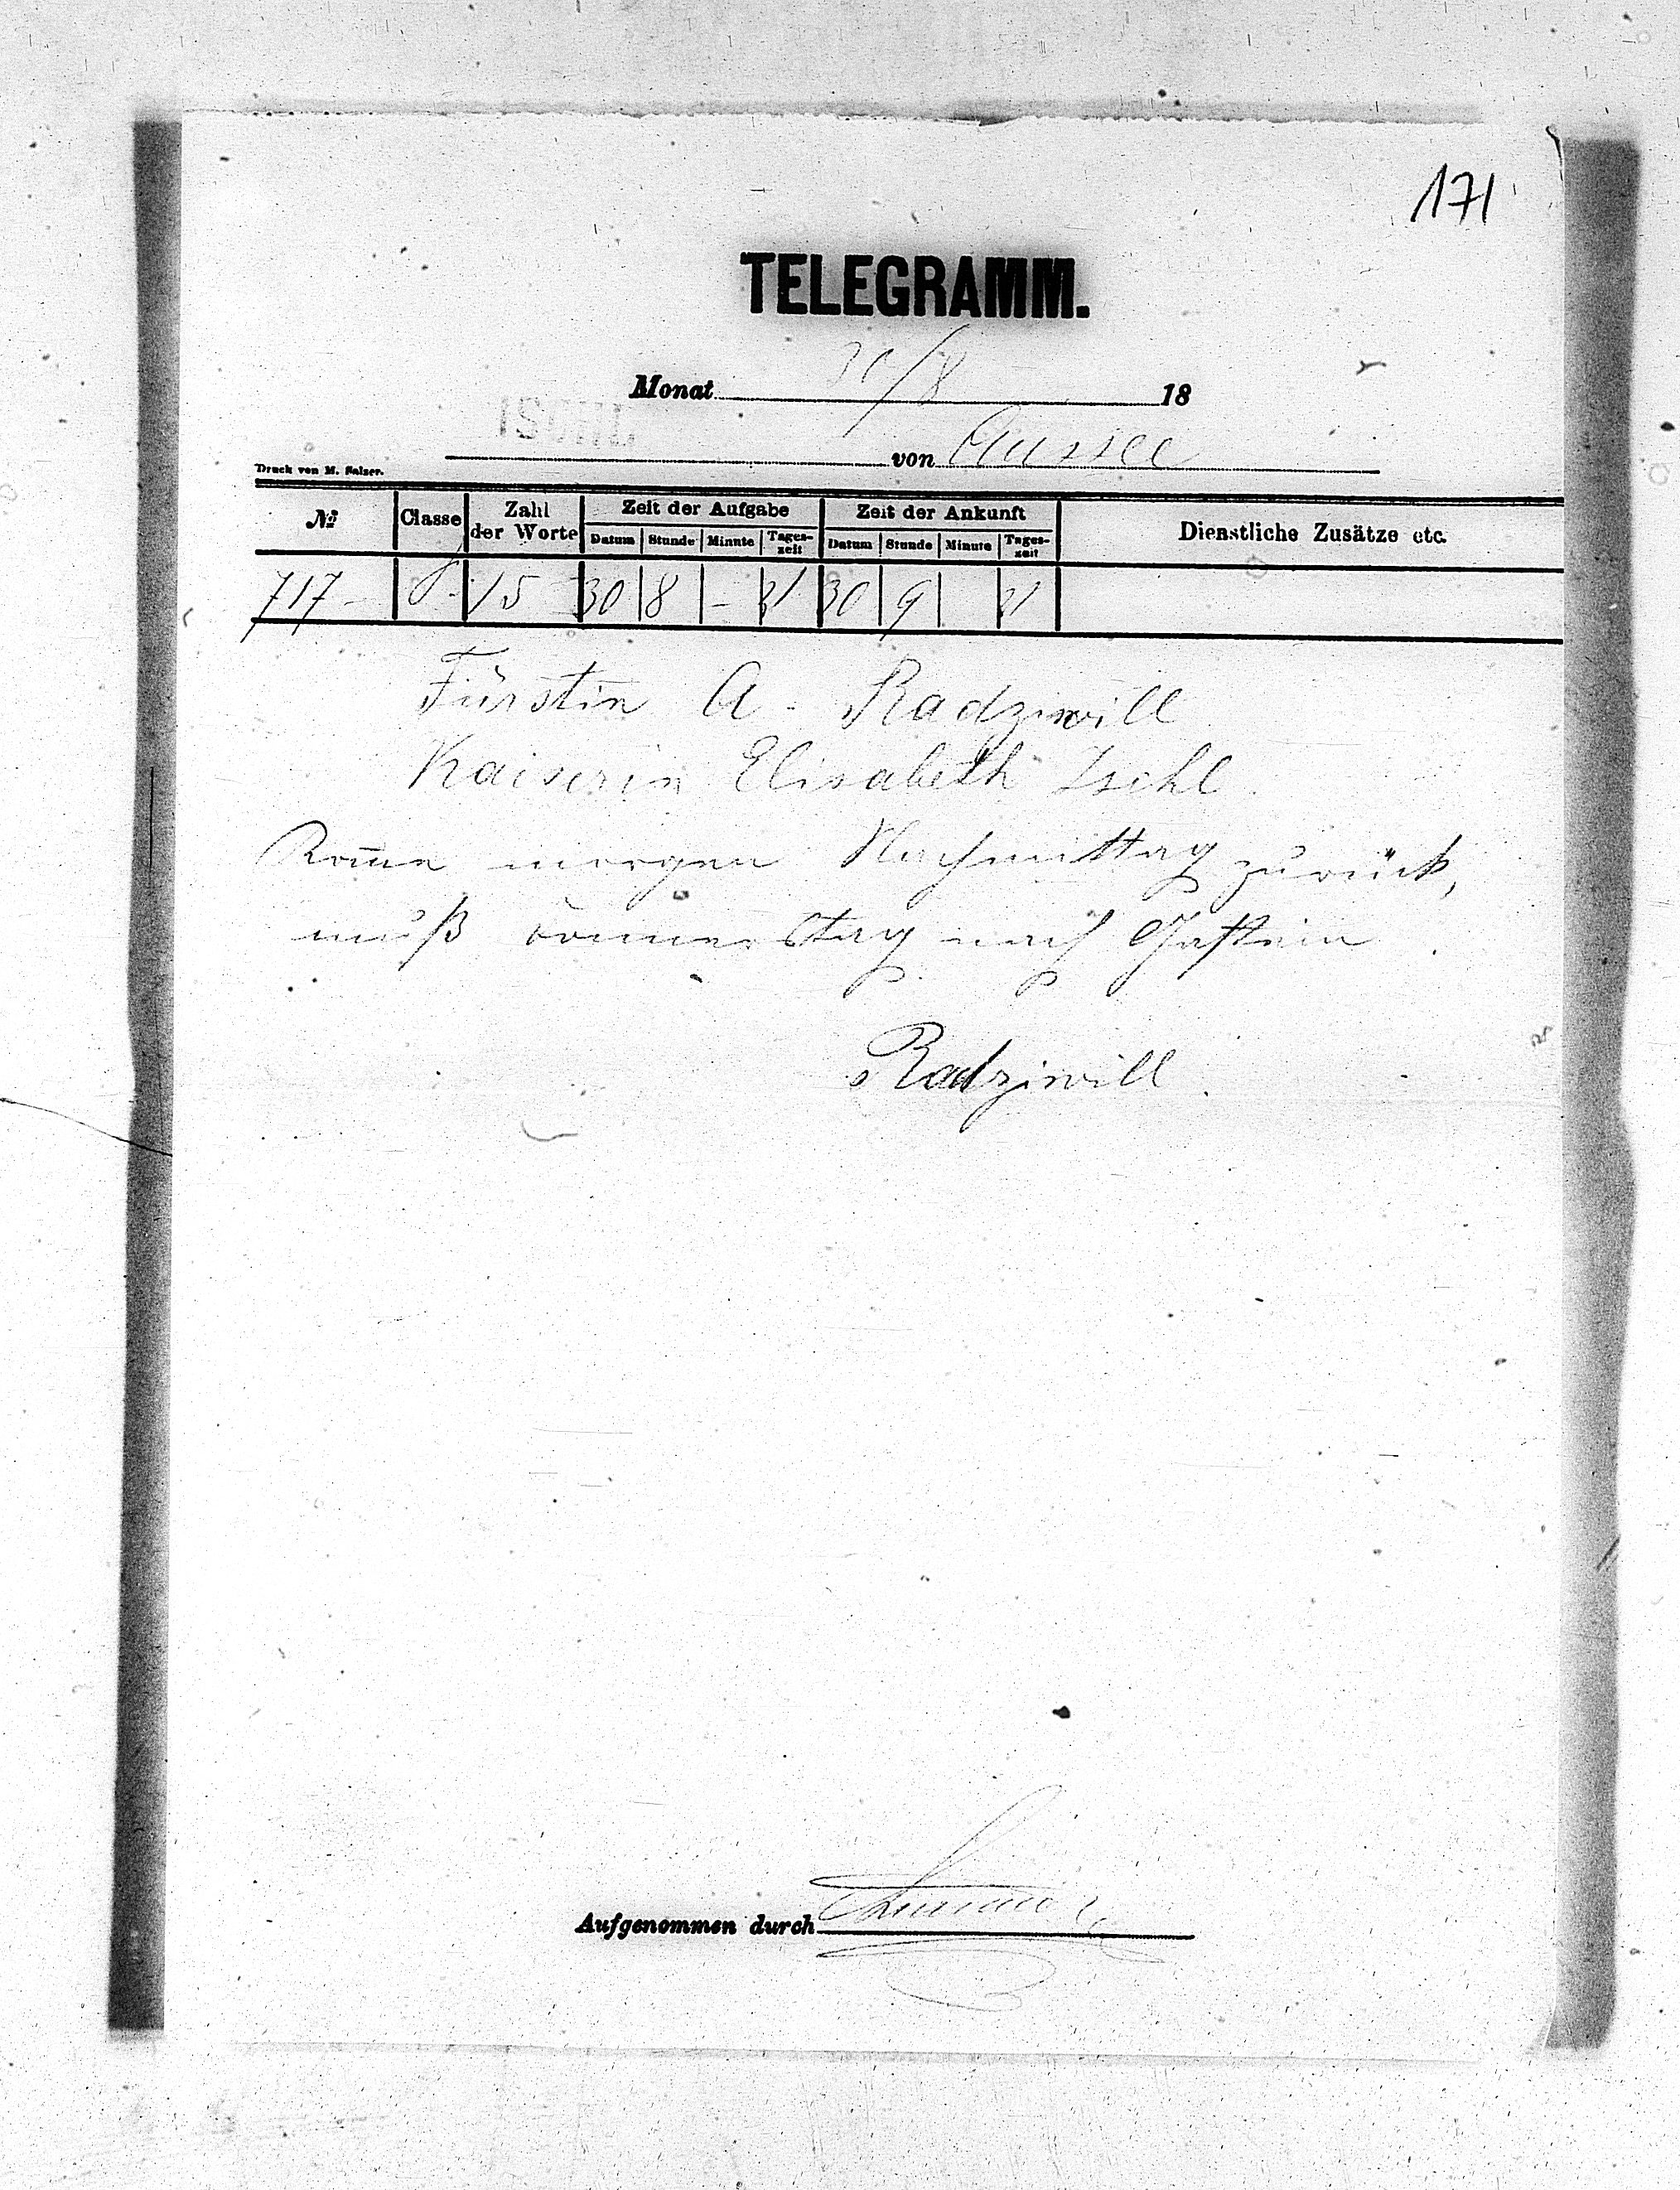 171
TELEGRAMM.
Monat 30/8 18
ISCHL
von Aussee
Druck von M. Salzer.
№ Classe Zahl der Worte Zeit der Aufgabe Zeit der Ankunft Dienstliche Zusätze etc.
Datum Stunde Minute Tages-zeit Datum Stunde Minute Tages-zeit
717 15 30 8 30 9
Fürstin A. Radziwill
Kaiserin Elisabeth Ischl
Kom̅e morgen Nachmittag zurück,
muß donnerstag nach Gastein.
Radziwill.
Aufgenommen durch